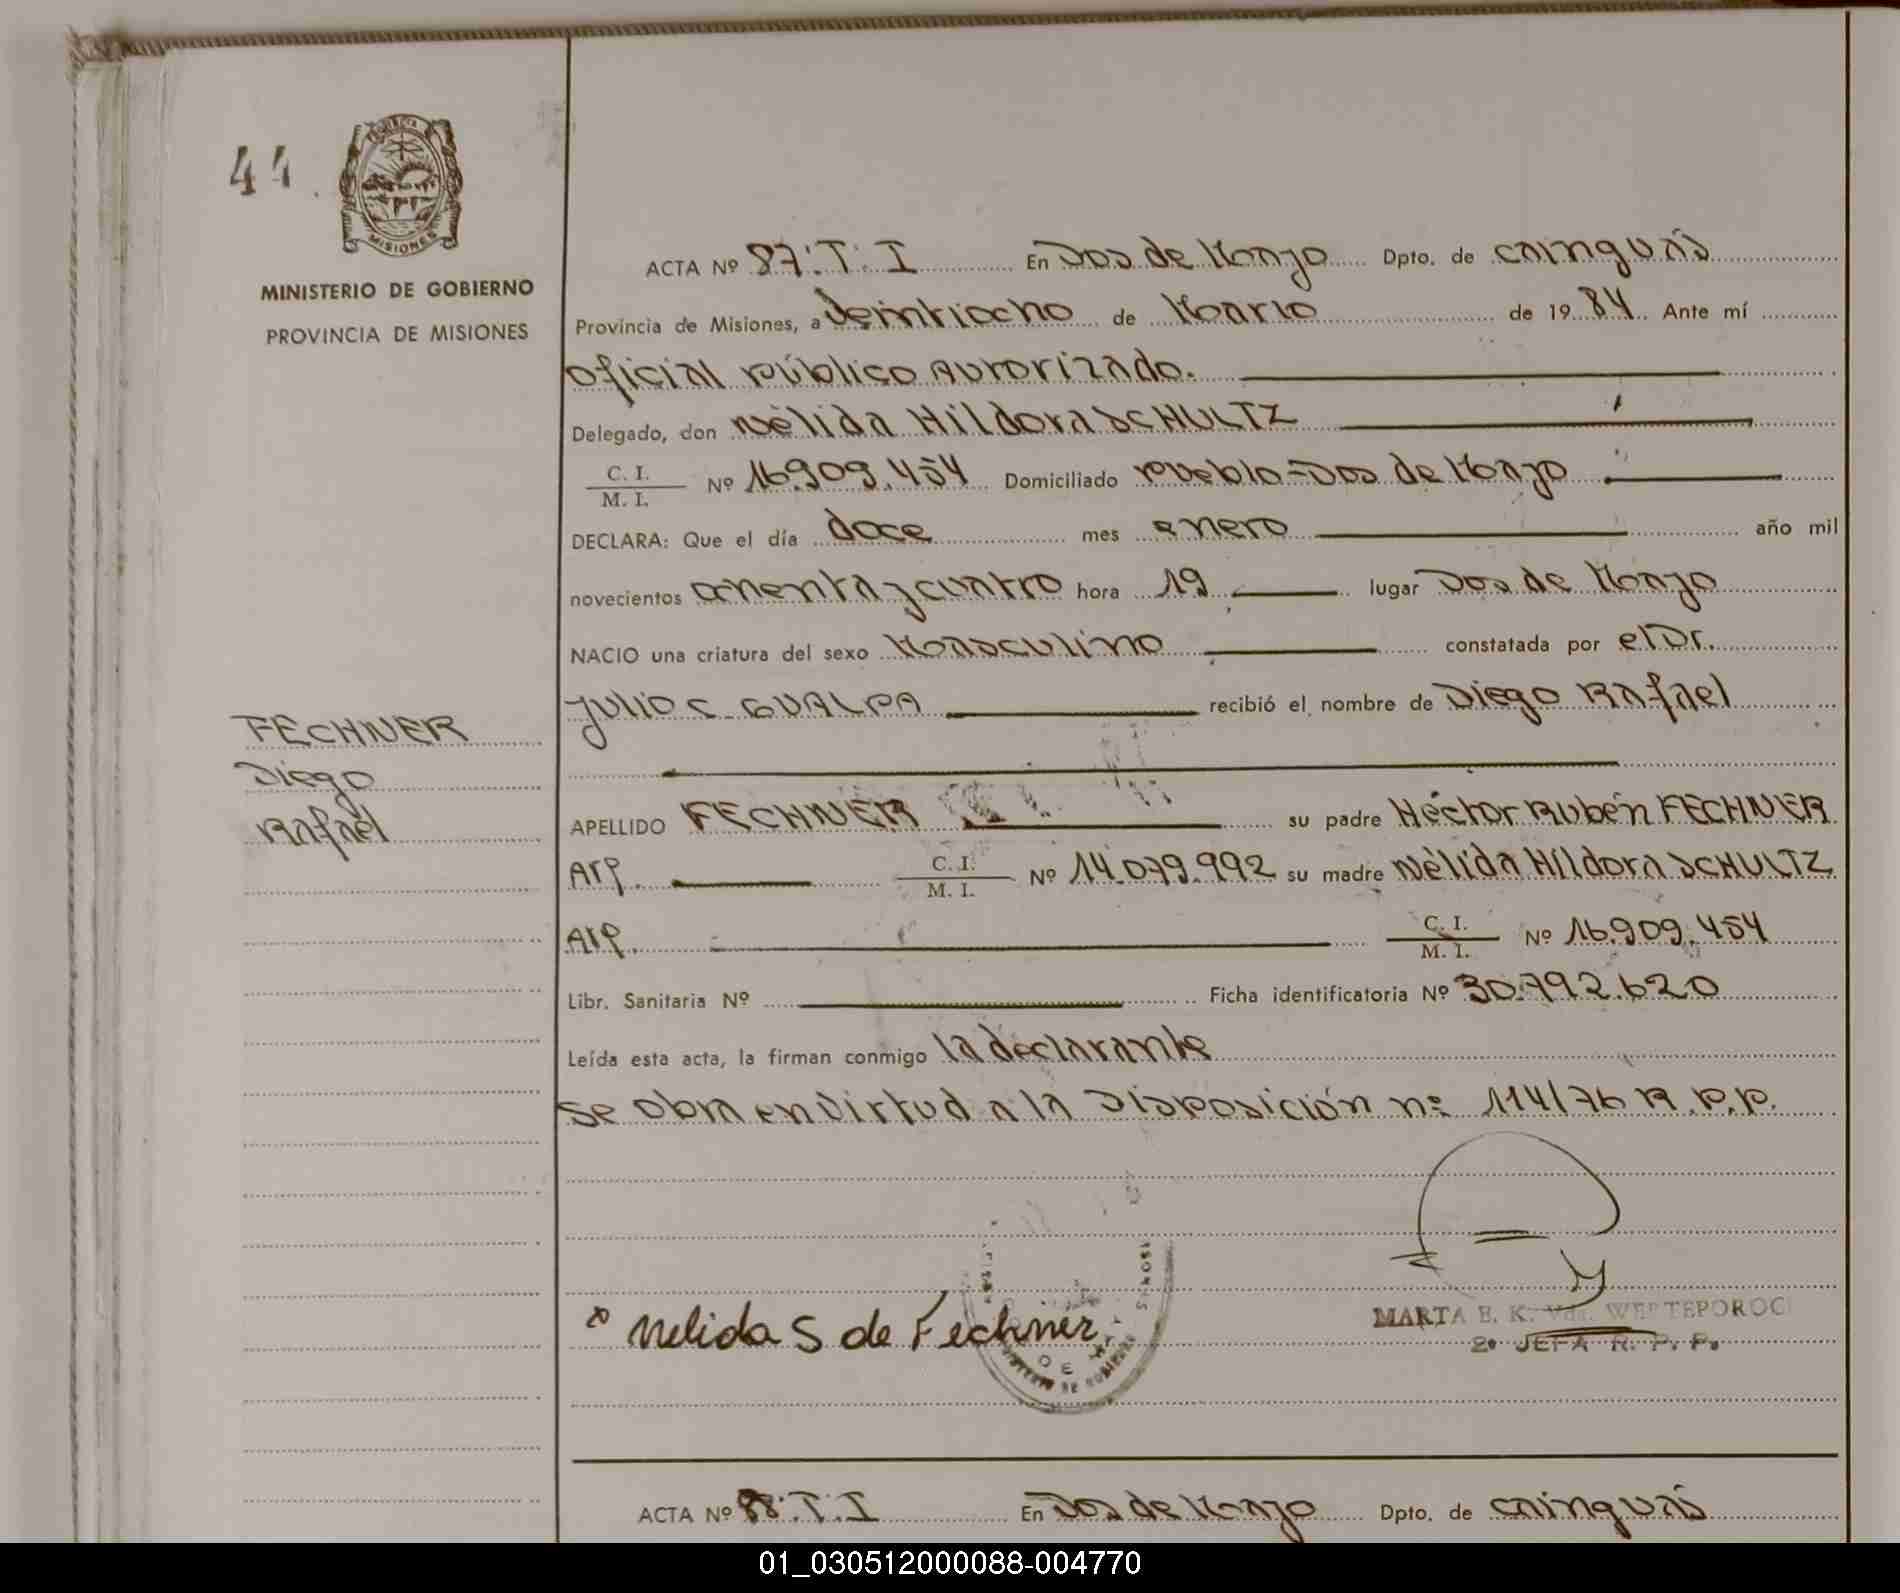 44
PROVINCIA
MISIONES
MINISTERIO DE GOBIERNO
PROVINCIA DE MISIONES
ACTA Nº 87.T.I En Dos de Mayo Dpto. de Cainguás
Provincia de Misiones, a Veintiocho de Marzo de 1984 Ante mí
Oficial Público Autorizado.
Delegado, don Nélida Hildora SCHULTZ
C. I.
M. I. Nº 16.909.454 Domiciliado Pueblo-Dos de Mayo
DECLARA: Que el día doce mes enero año mil
novecientos ochenta y cuatro hora 19 lugar Dos de Mayo
NACIO una criatura del sexo Masculino constatada por el Dr.
Julio C. GUALPA recibió el nombre de Diego Rafael
FECHNER
Diego
Rafael
APELLIDO FECHNER su padre Héctor Rubén FECHNER
Arg. C. I.
M. I. Nº 14.079.992 su madre Nélida Hildora SCHULTZ
Arg. C. I.
M. I. Nº 16.909.454
Libr. Sanitaria Nº Ficha identificatoria Nº 30.792.620
Leída esta acta, la firman conmigo la declarante
Se obra en Virtud a la Disposición nº 114/76 R.P.P.
x Nelida S de Fechner
MARTA E. K. Vda. WESTEPOROC
2º JEFA R. P. P.
ACTA Nº 88.T.I En Dos de Mayo Dpto. de Cainguás
01_030512000088-004770